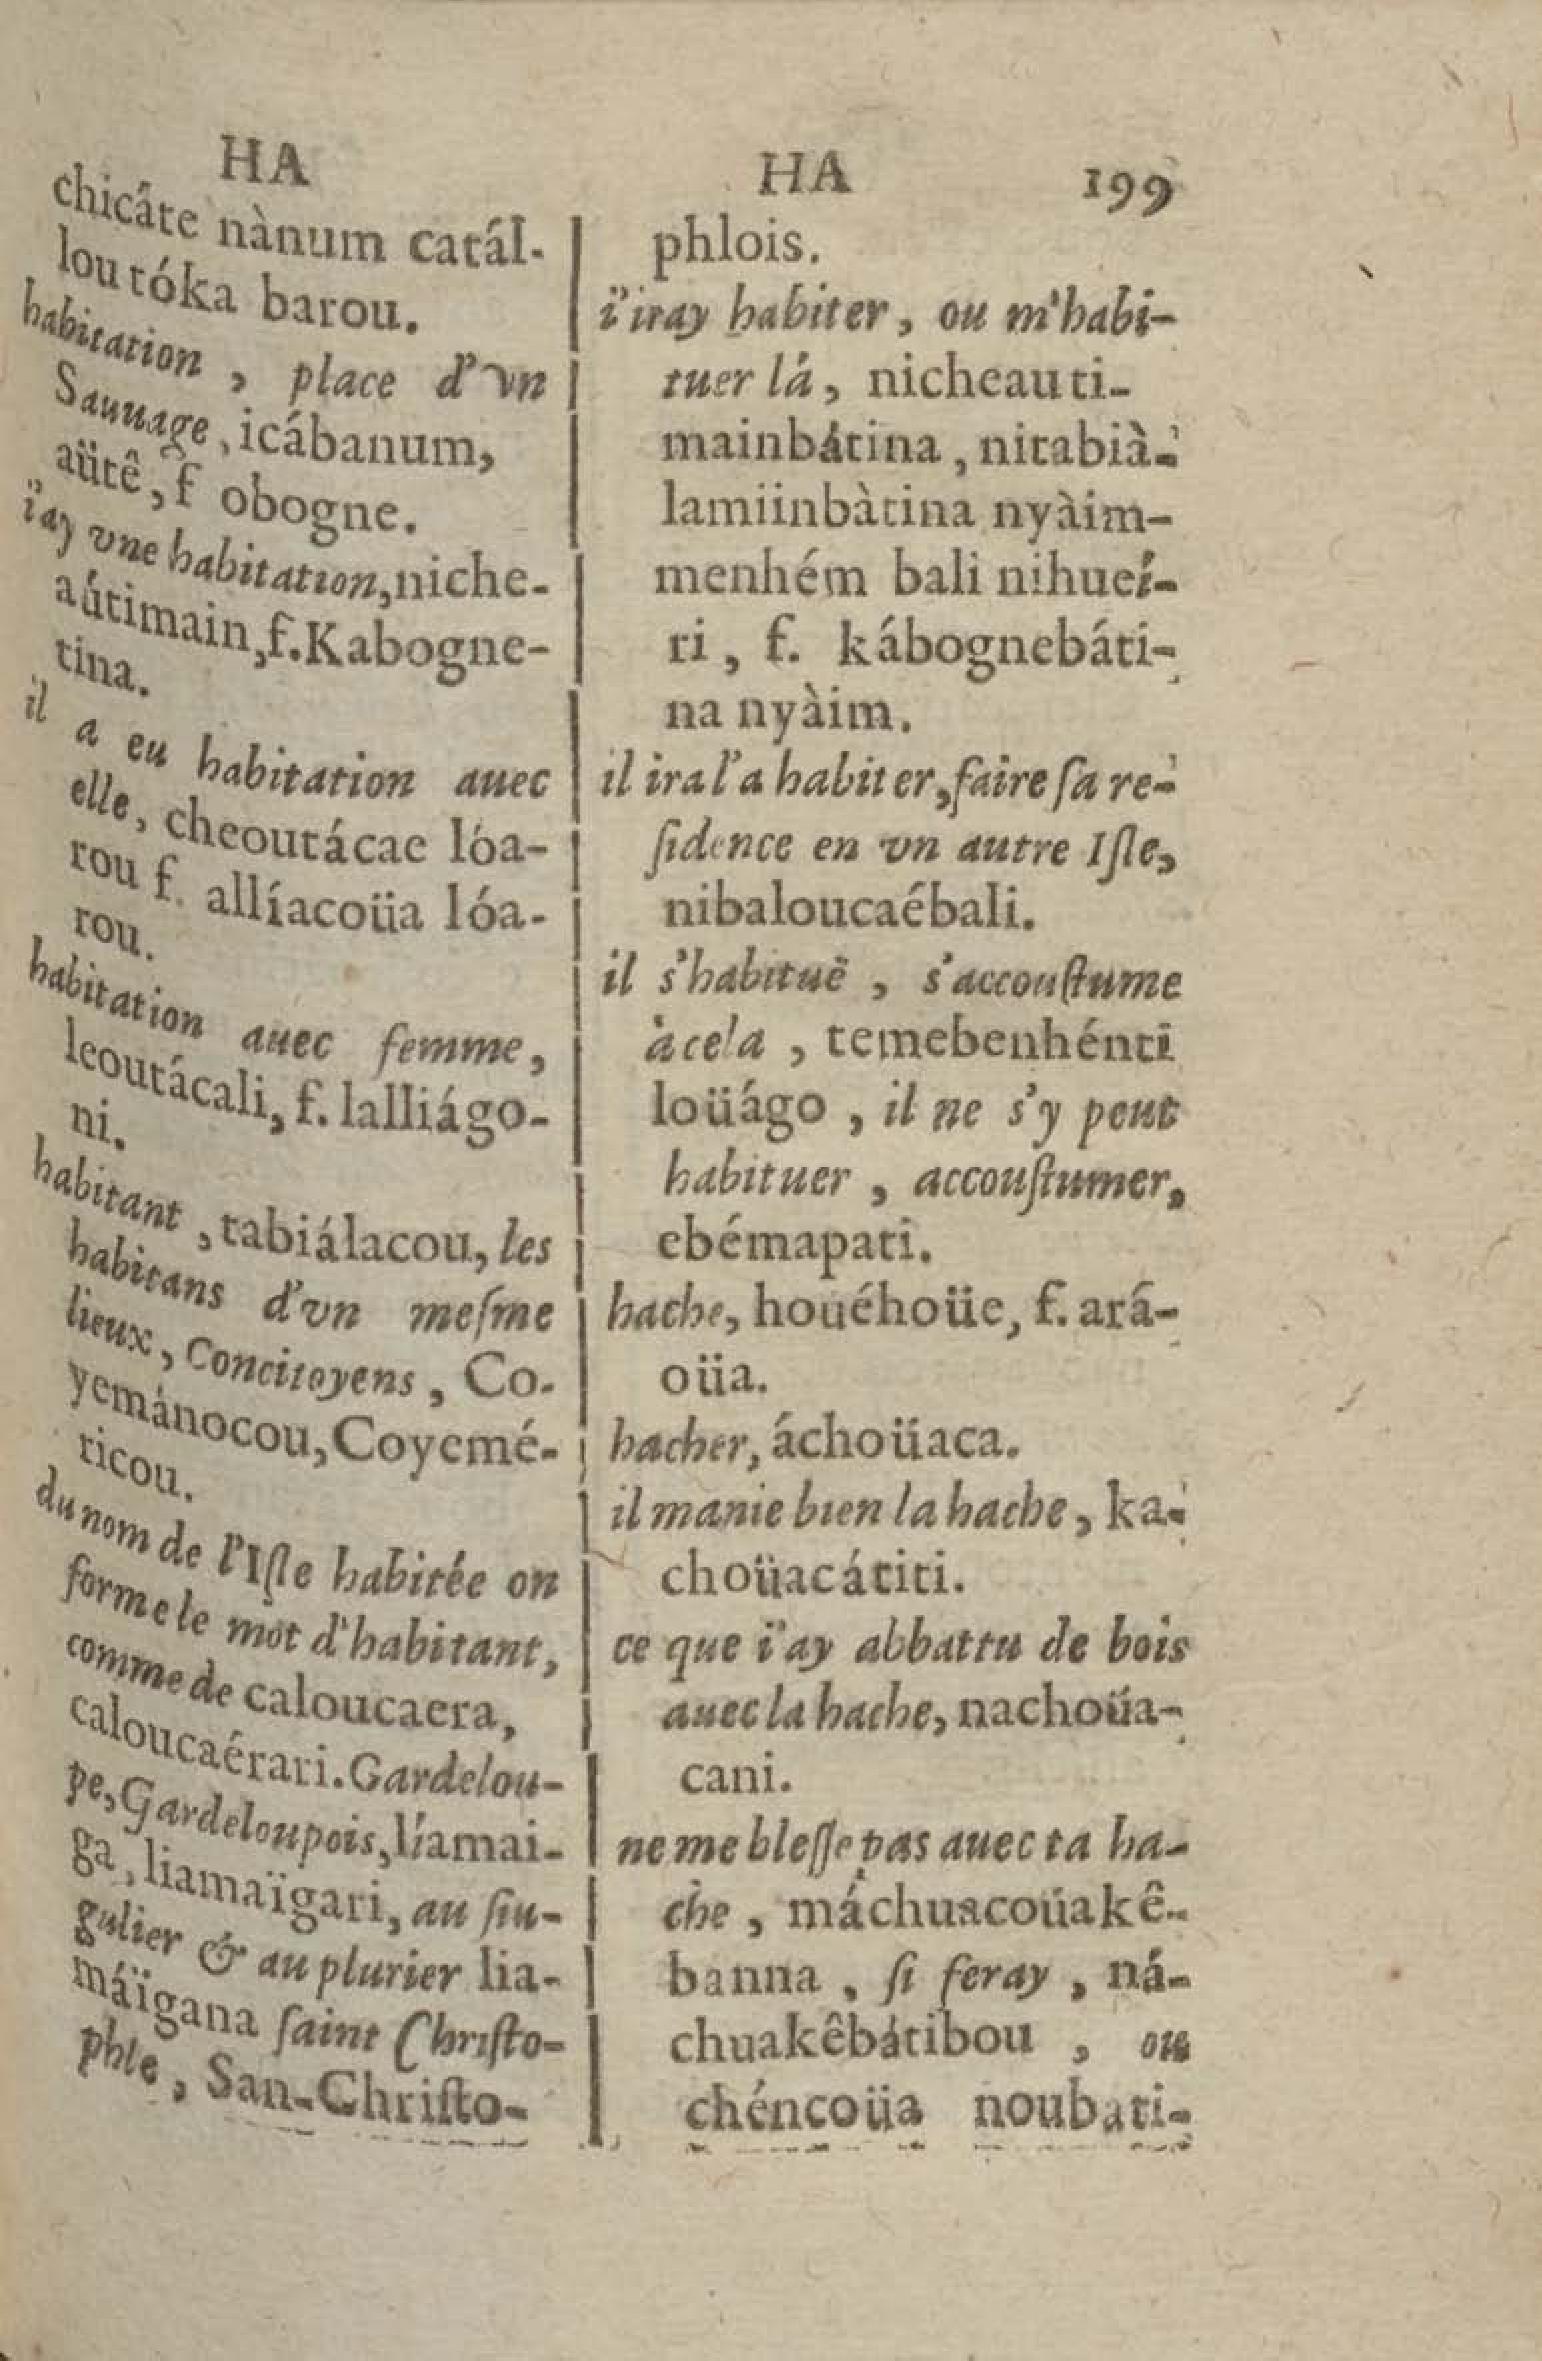 HA
chicáte nànum catál-
lou tóka barou.
habitation, place d'vn
Sauuage, icábanum,
aütê, f obogne.
i'ay vne habitation, niche-
aútimain, f. Kabogne-
tina.
il a eu habitation auec
elle, cheoutácae lóa-
rou f. allíacoüa lóa-
rou.
habitation auec femme,
leoutácali, f. lalliágo-
ni.
habitant, tabiálacou, les
habitans d'vn meſme
lieux, Concitoyens, Co-
yemánocou, Coyemé-
ricou.
du nom de l'Iſle habitée on
forme le mot d'habitant,
comme de caloucaera,
caloucaérari. Gardelou-
pe, Gardeloupois, líamai-
ga, liamaïgari, au ſin-
gulier & au plurier lia-
máïgana ſaint Chriſto-
phle, San-Chriſto-
HA 199
phlois.
i'iray habiter, ou m'habi-
tuer lá, nicheauti-
mainbátina, nitabià-
lamiinbàtina nyàim-
menhém bali nihueí-
ri, f. kábognebáti-
na nyàim.
il ira l'a habiter, faire ſa re-
ſidence en vn autre Iſle,
nibaloucaébali.
il s'habituë, s'accouſtume
à cela, temebenhénti
loüágo, il ne s'y peut
habituer, accouſtumer,
ebémapati.
hache, houéhoüe, f. ará-
oüa.
hacher, áchoüaca.
il manie bien la hache, ka-
choüacátiti.
ce que i'ay abbattu de bois
auec la hache, nachoüa-
cani.
ne me bleſſe pas auec ta ha-
che, máchuacoüakê-
banna, ſi feray, ná-
chuakêbátibou, ou
chéncoüa noubati-